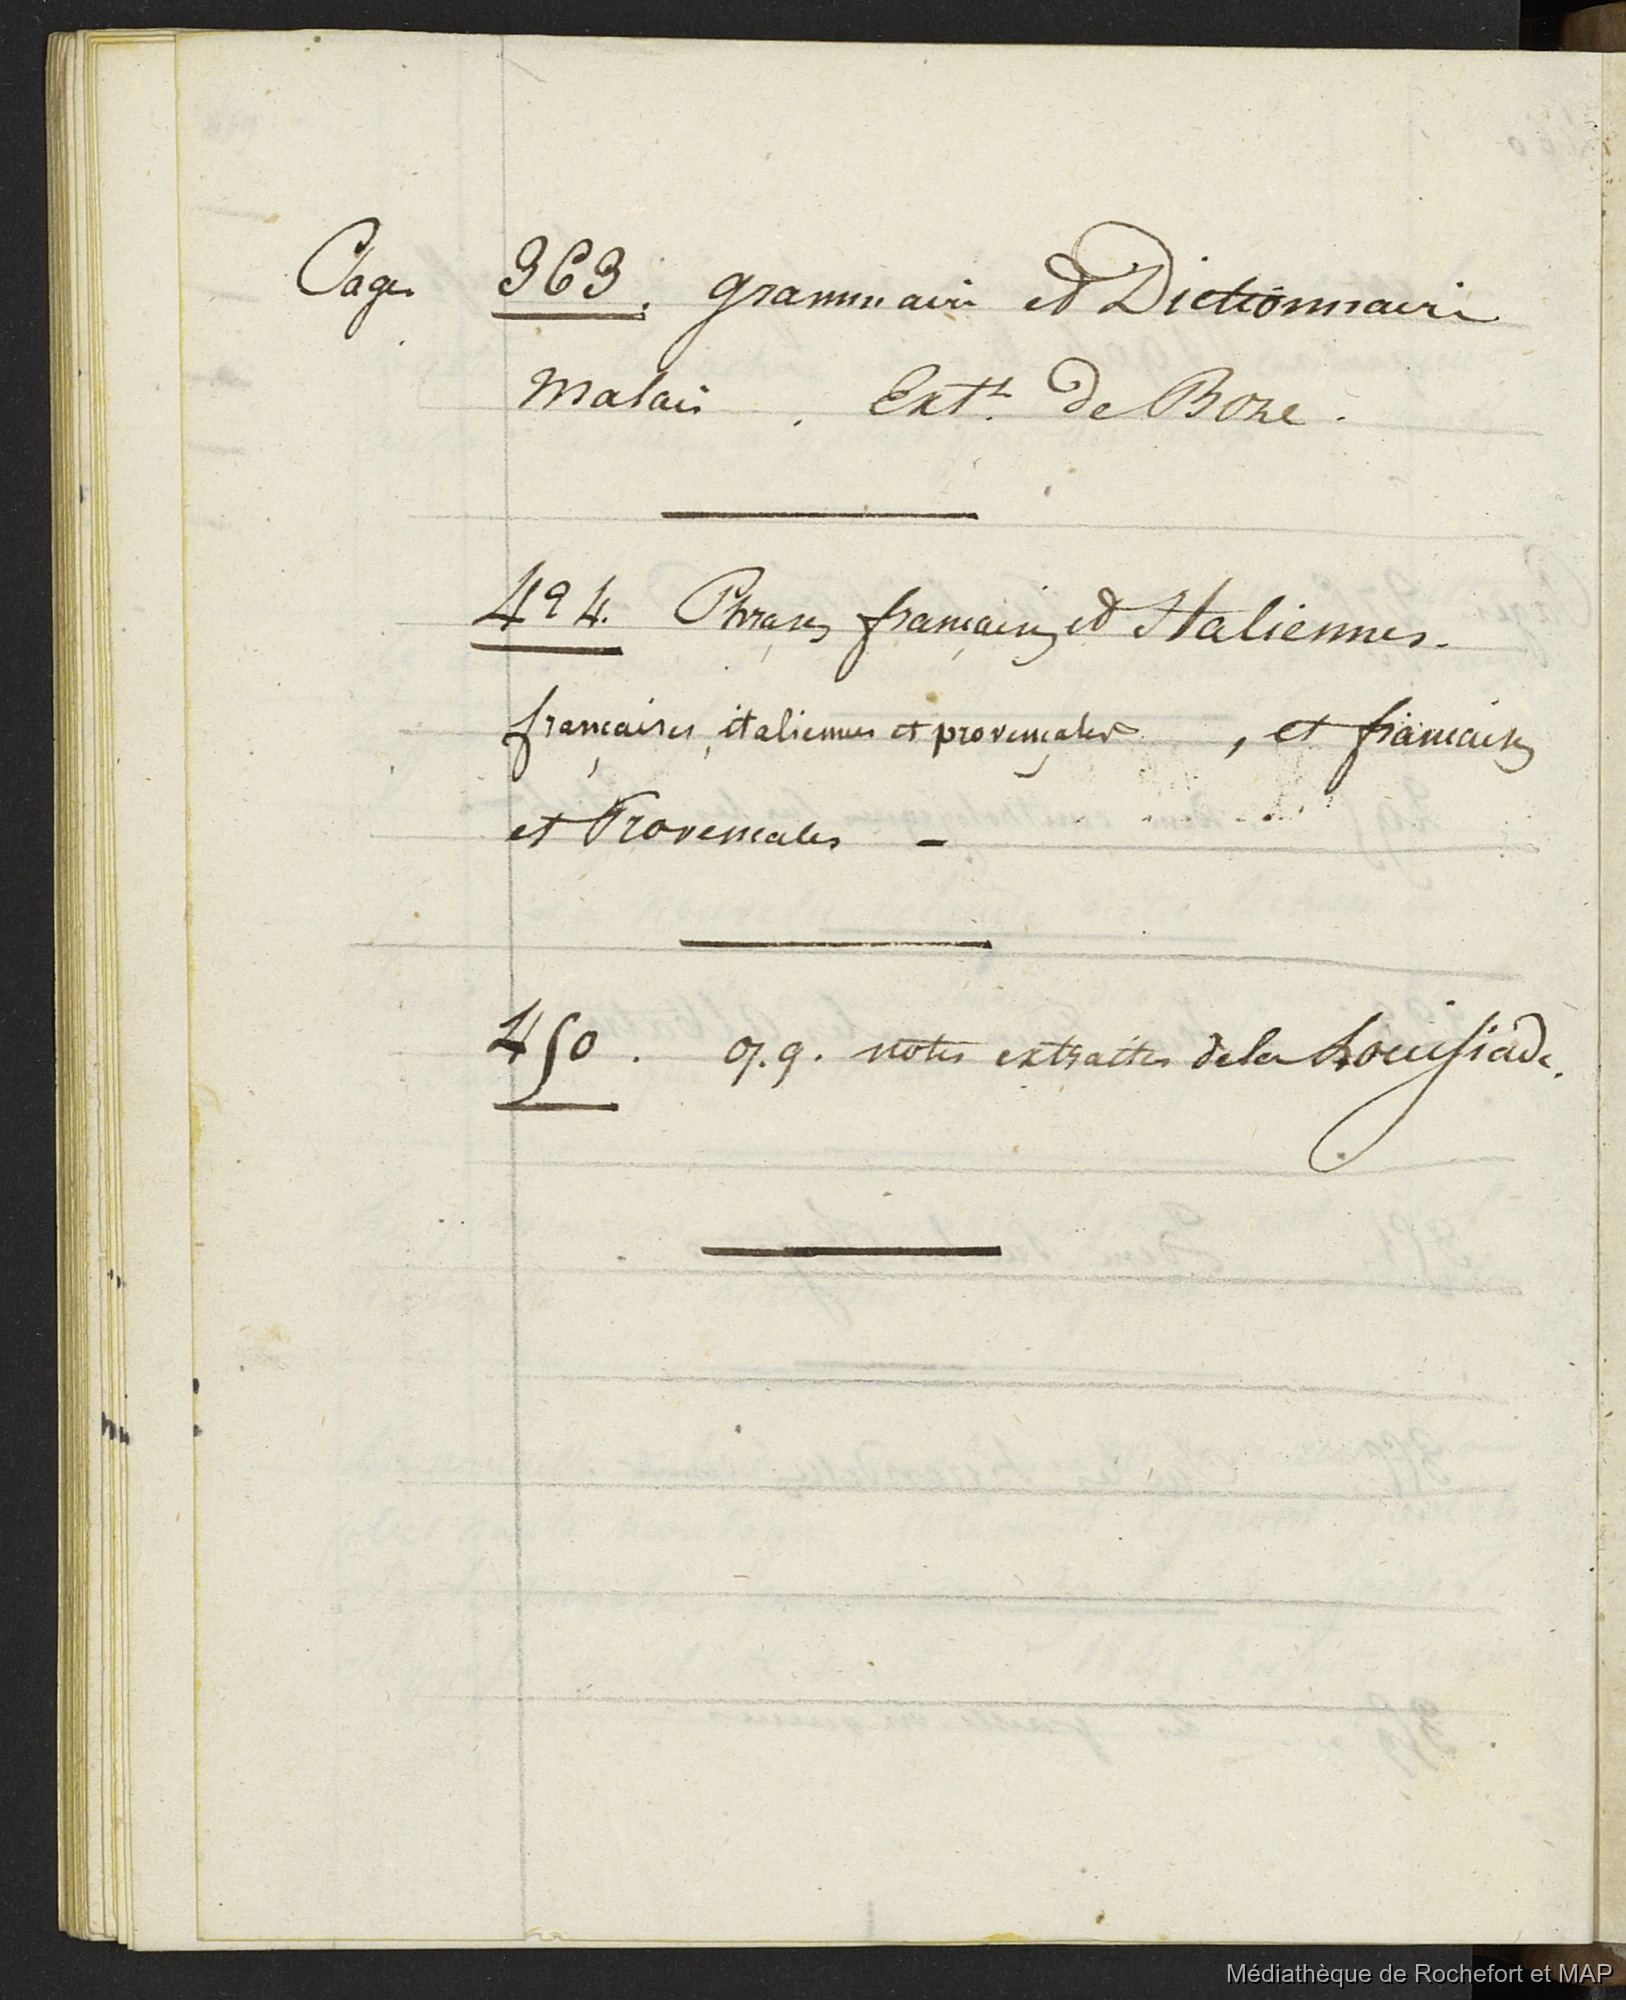 Pages 363. grammaire et Dictionnaire
malais . Extt. de Boze.
424. Phrases françaises et Italiennes.
françaises, italiennes et provençales , et françaises
et Provençales -
450. q.q. notes extraites de la Louisiade.
Médiathèque de Rochefort et MAP